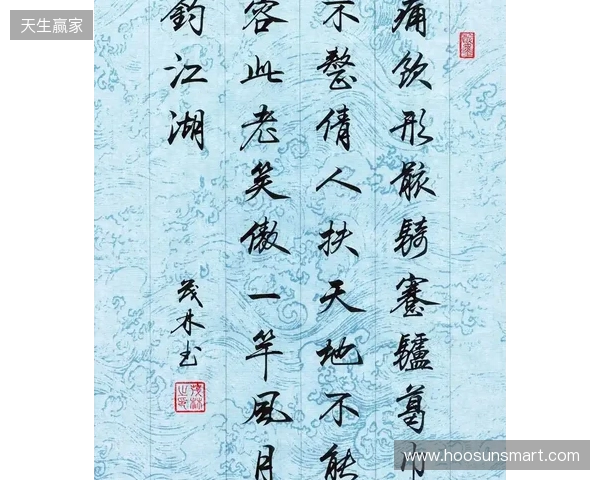 天生赢家
痛飲形骸騎蹇驢葛巾
不整倩人扶天地不能
容此老笑傲一竿風月
釣江湖
茂林书
www.hoosunsmart.com